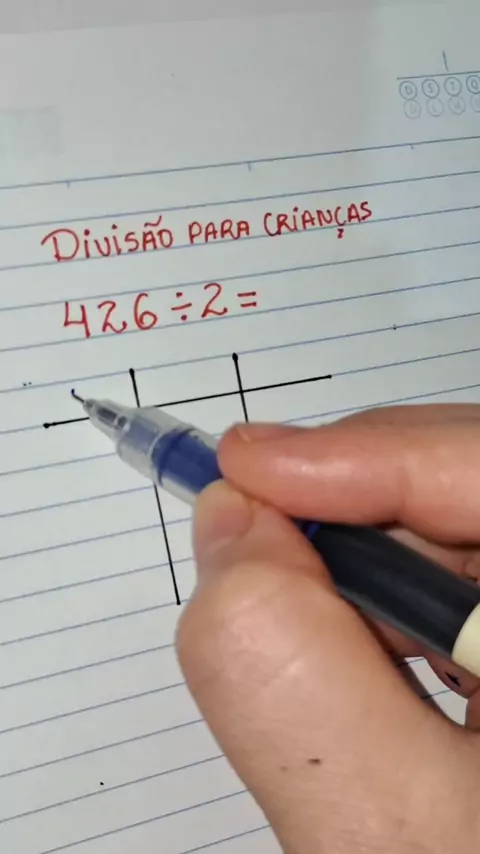 D S T Q
DIVISÃO PARA CRIANÇAS
426÷2=